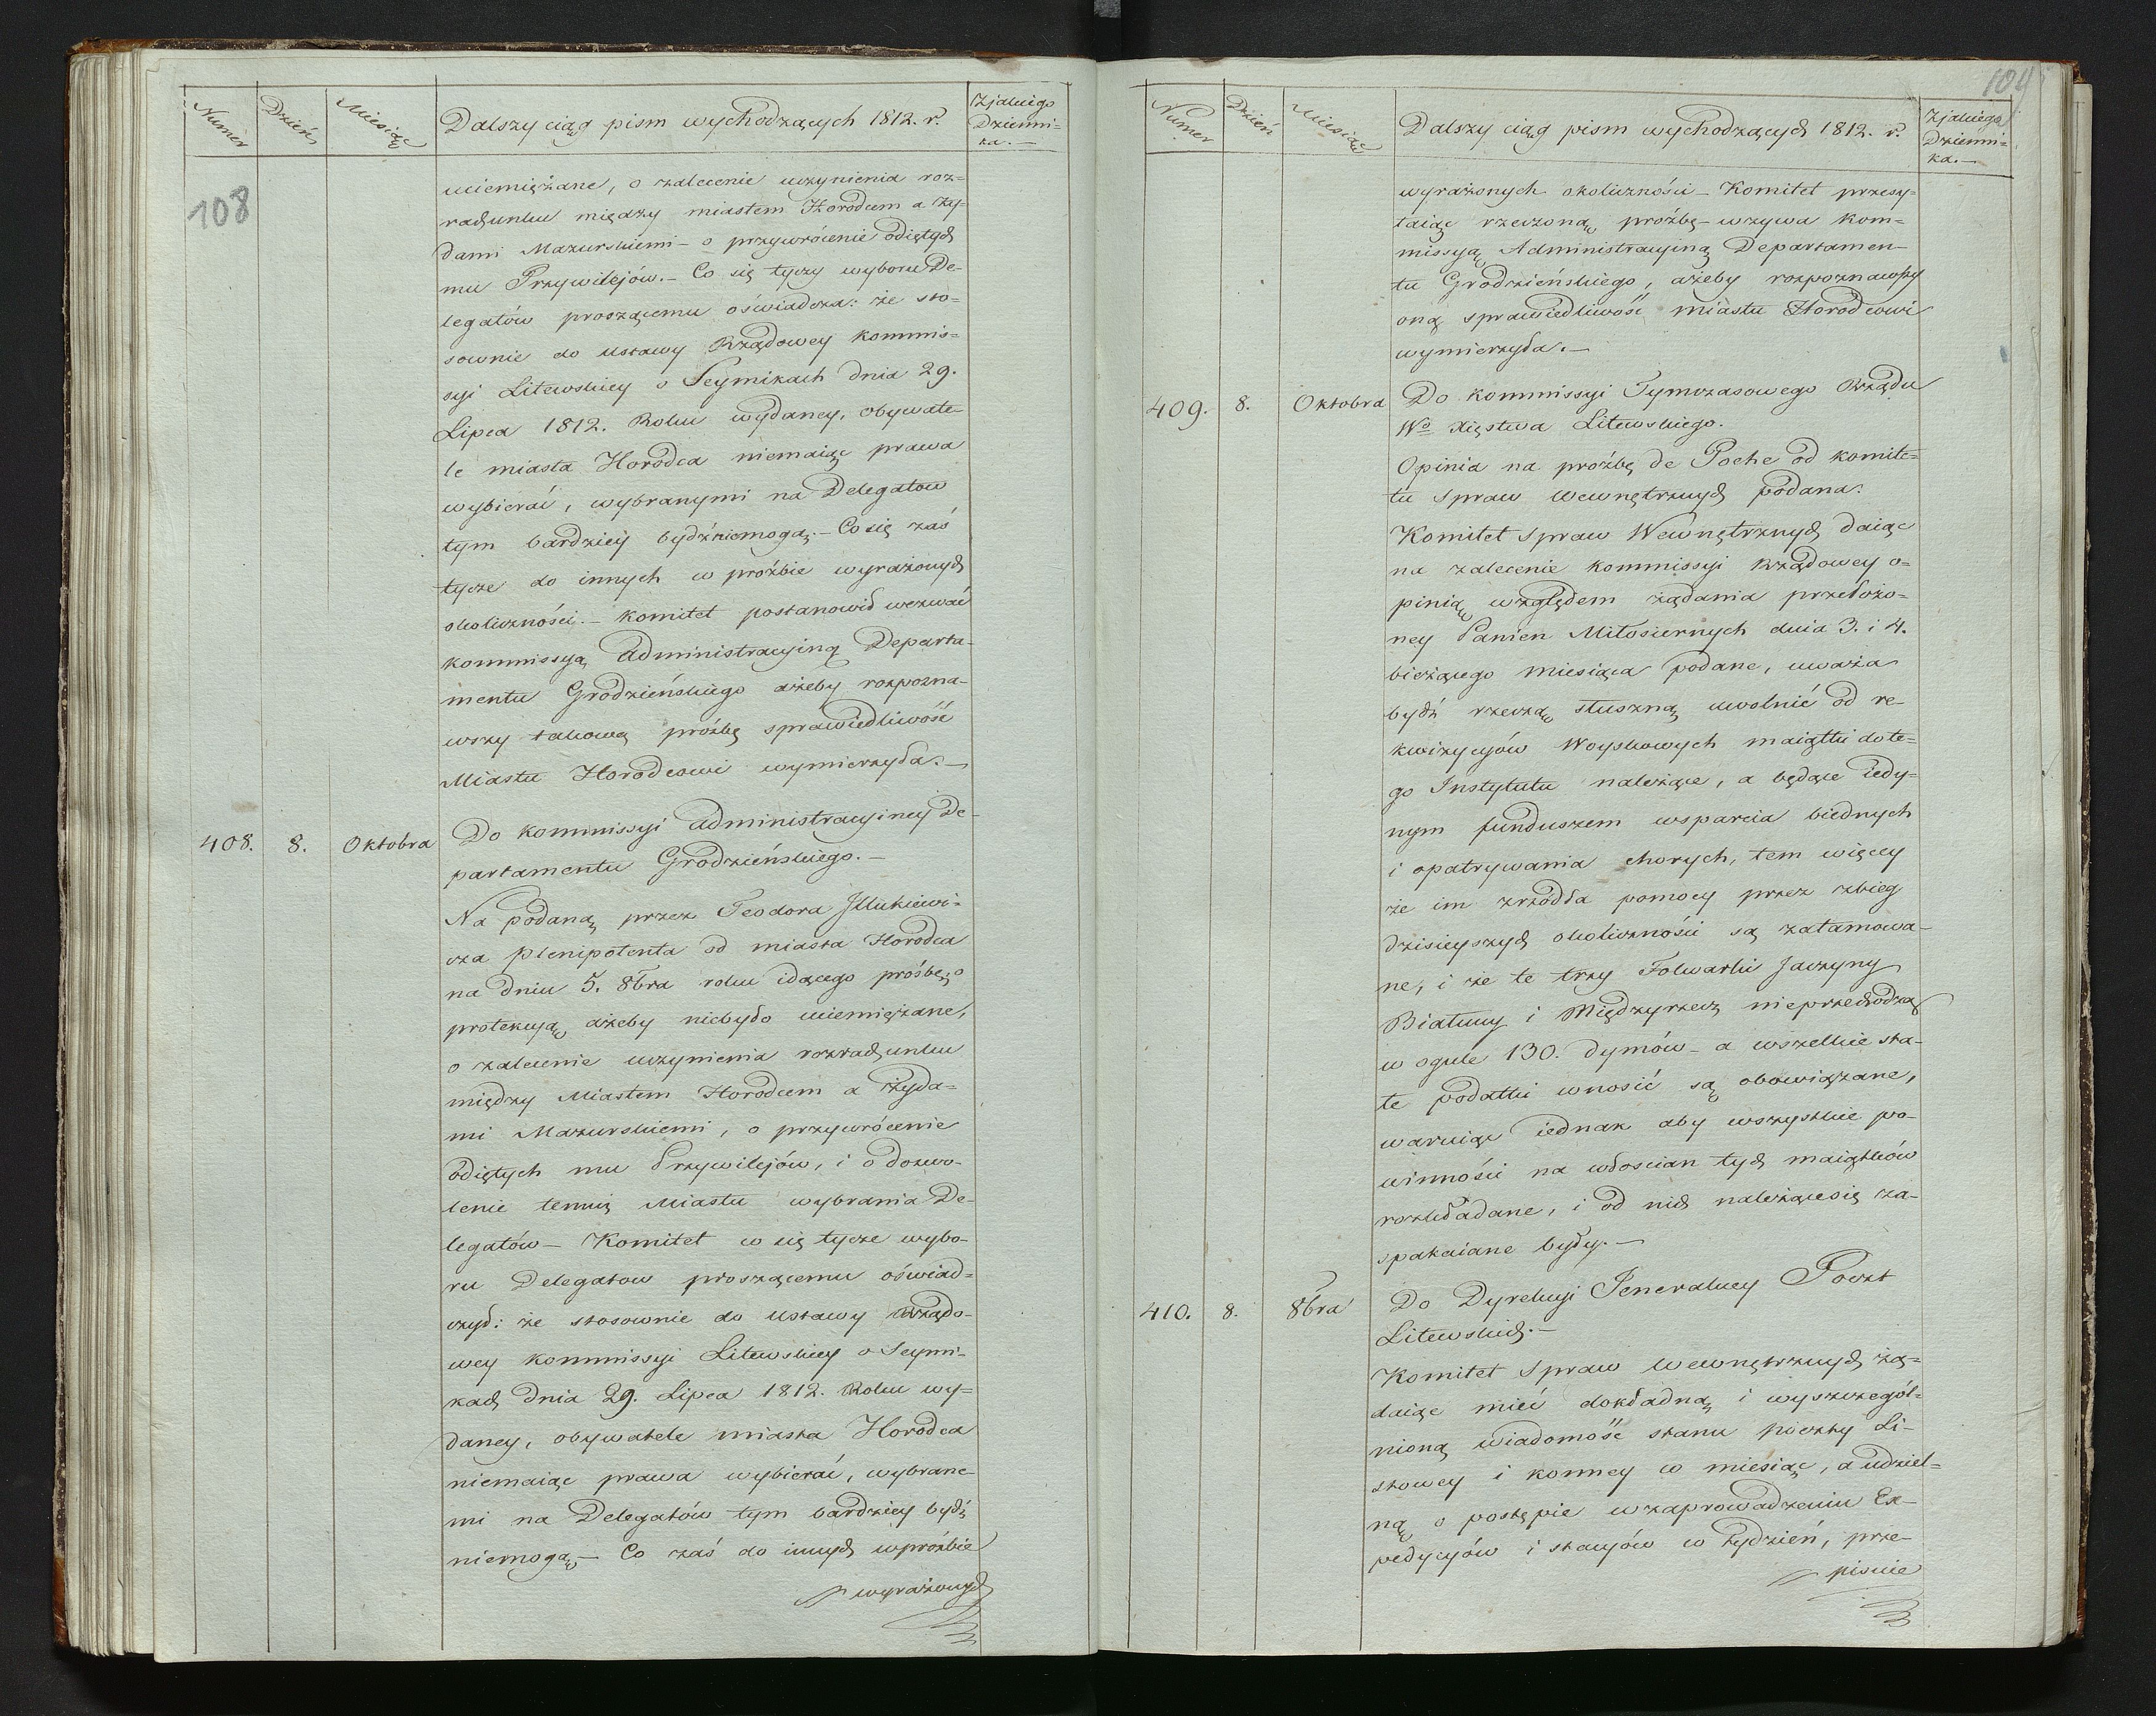 Numer
Dzień
Miesiąc
Dalszy ciąg pism wychodzących 1812. r.
Z jakiego
Dzienni-
ka.—
108
uciemiężane, o zalecenie uczynienia roz-
rachunku między miastem Horodcem a ży-
dami Mazurskiemi – o przywrócenie odiętych
mu Przywilejów. – Co się tyczy wyboru De-
legatów proszącemu oświadcza: że sto-
sownie do ustawy Rządowey kommis-
syi Litewskiey o Seymikach dnia 29.
Lipca 1812. Roku wydaney, obywate-
le miasta Horodca niemaiąc prawa
wybierać, wybranymi na Delegatow
tym bardziey bydź niemogą. – Co się zaś
tycze do innych w prożbie wyrażonych
okoliczności. – Komitet postanowił wezwać
kommissyą Administracyiną Departa-
mentu Grodzieńskiego ażeby rozpozna-
wszy takową próźbę sprawiedliwość
Miastu Horodcowi wymierzyła. —
408. 8. Oktobra
Do kommissyi Administracyiney De-
partamentu Grodzieńskiego. —
Na podaną przez Teodora Illukiewi-
cza Plenipotenta od miasta Horodca
na dniu 5. 8bra roku idącego prośbę, o
protekcyą ażeby niebyło uciemiężane,
o zalecenie uczynienia rozrachunku
między Miastem Horodcem a żyda-
mi Mazurskiemi, o przywrócenie
odiętych mu Przywilejów, i o dozwo-
lenie temuż Miastu wybrania De-
legatów – Komitet co się tycze wybo-
ru Delegatow proszącemu oświad-
czył: że stosownie do ustawy Rządo-
wey kommissyi Litewskiey o Seymi-
kach dnia 29. Lipca 1812. Roku wy-
daney, obywatele miasta Horodca
niemaiąc prawa wybierać, wybrane-
mi na Delegatów tym bardziey bydź
niemogą. – Co zaś do innych w próźbie
wyrażonych
109
Numer
Dzień
Miesiąc
Dalszy ciąg pism wychodzących 1812. r.
Z jakiego
Dzienni-
ka.—
wyrażonych okoliczności – Komitet przesy-
łaiąc rzeczoną proźbę – wzywa kom-
missyą Administracyiną Departamen-
tu Grodzieńskiego, ażeby rozpoznawszy
oną sprawiedliwość miastu Horodcowi
wymierzyła. —
409. 8. Oktobra
Do kommissyi Tymczasowego Rządu
Wo Xięstwa Litewskiego.
Opinia na proźbę de Poche od komite-
tu spraw wewnętrznych podana.
Komitet spraw Wewnętrznych daiąc
na zalecenie kommissyi Rządowey o-
pinią względem żądania przełożo-
ney Panien Miłosiernych dnia 3. i 4.
bieżącego miesiąca podane, uważa
bydź rzeczą słuszną uwolnić od re-
kwizycyów Woyskowych maiątki do te-
go Instytutu należące, a będące iedy-
nym funduszem wsparcia biednych
i opatrywania chorych, tem więcey
że im zrzódła pomocy przez zbieg
dzisieyszych okoliczności są zatamowa-
ne, i że te trzy Folwarki Jaczyny
i Międzyrzecz nieprzechodzą
w ogule 130. Dymów – a wszelkie sta-
łe podatki wnosić są obowiązane,
waruiąc iednak aby wszystkie po-
winności na włoscian tych maiątków
rozkładane, i od nich należącesię za-
spakaiane były. —
410. 8. 8bra
Do Dyrekcyi Jeneralney Poczt
Litewskich. —
Komitet Spraw wewnętrznych żą-
daiąc mieć dokładną i wyszczegól-
nioną wiadomość stanu poczty Li-
stowey i konney co miesiąc, a udziel-
ną o postępie w zaprowadzeniu Ex-
pedycyów i stacyów co tydzień, prze-
pisuie